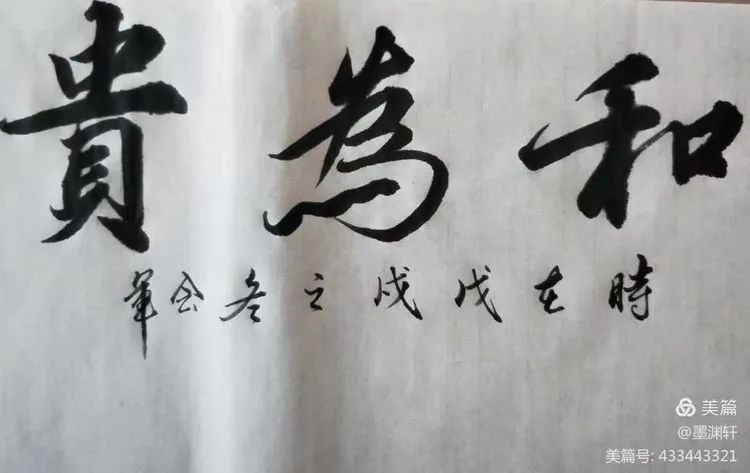 和為貴
時在戊戌之冬会軍
美篇
@墨渊轩
美篇号: 433443321